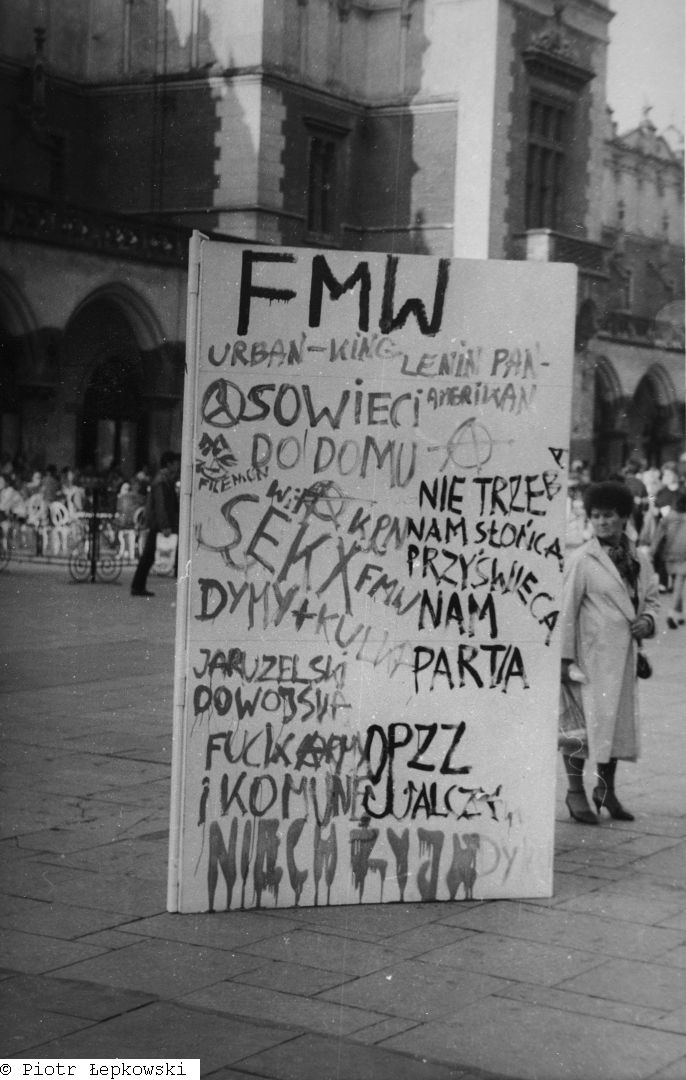 FMW
URBAN-KING LENIN PAN-
AMERIKAN
Ⓐ SOWIECI
DO DOMU Ⓐ
FILEMON
WiP Ⓐ KPN
NIE TRZEBA
NAM SŁOŃCA
PRZYŚWIECA
NAM
PARTIA
SEKX FMW
DYMY + KULKA
JARUZELSKI
DO WOJSKA
FUCK ARMY
i KOMUNE
OPZZ
WALCZY
NIECH ŻYJE
© Piotr Łepkowski